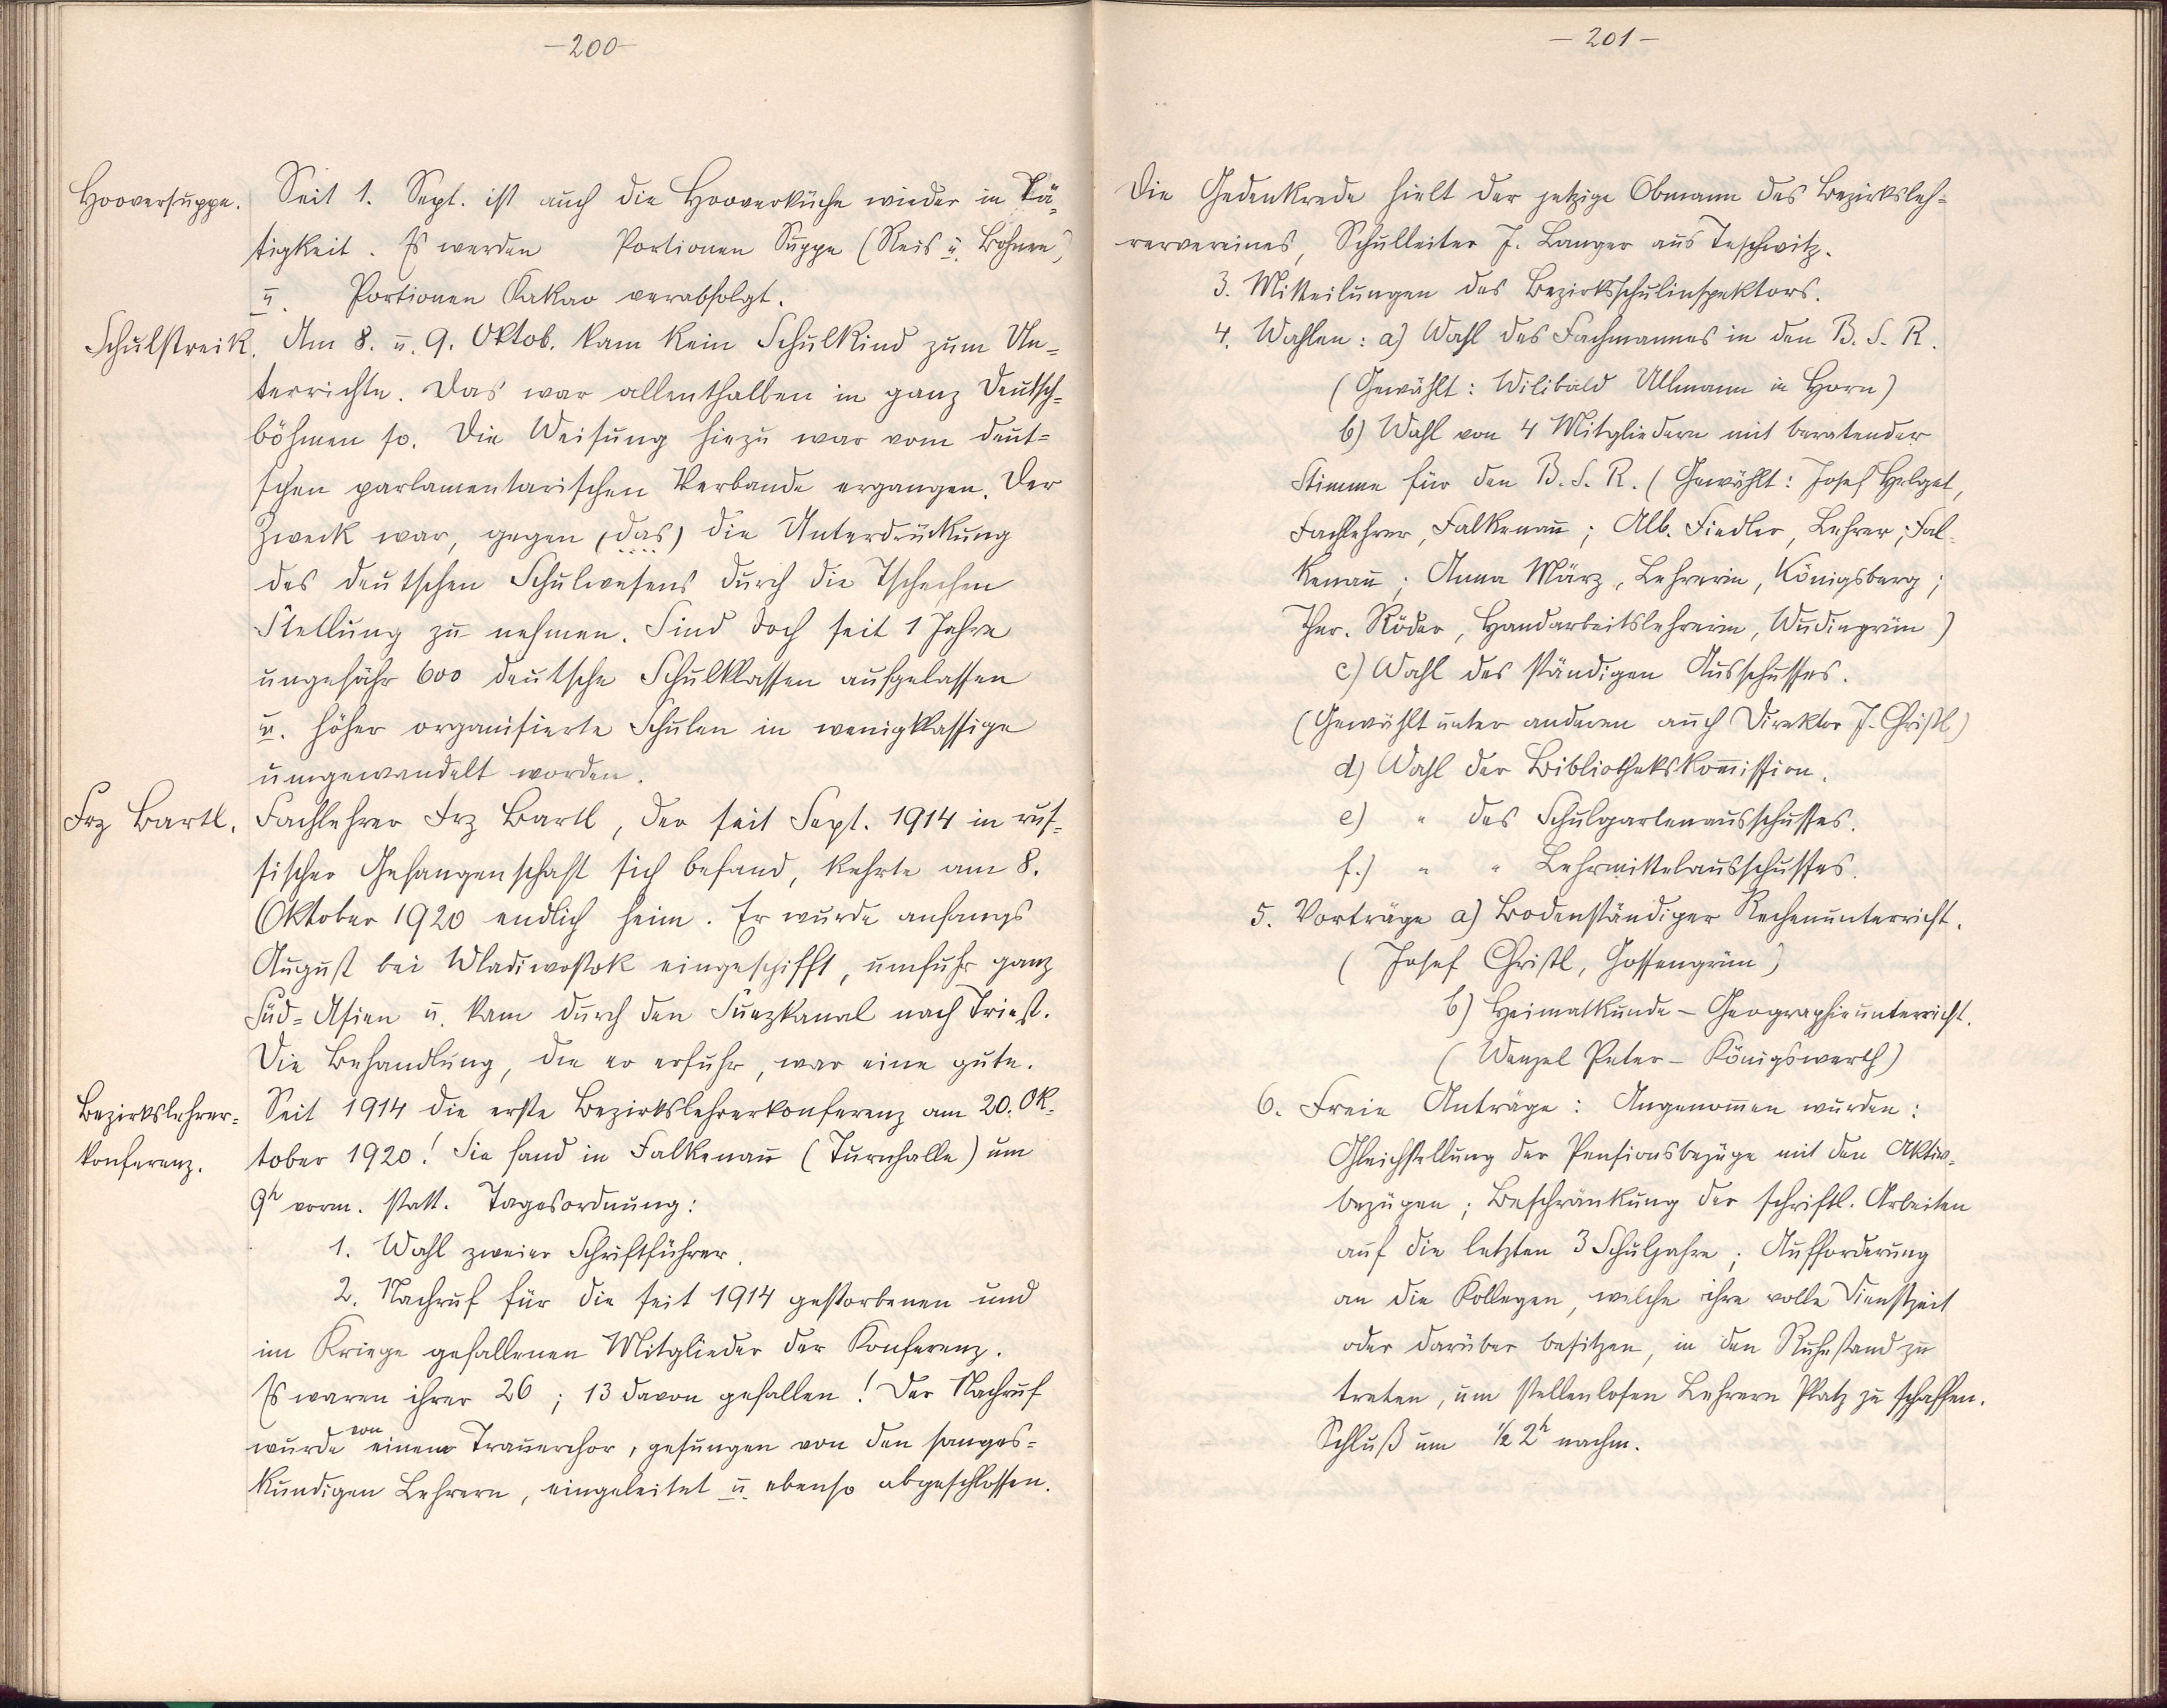 —200—
Hooversuppe.
Seit 1. Sept. ist auch die Hooverküche wieder in Tä-
tigkeit. Es werden Portionen Suppe (Reis u. Bohnen)
u. Portionen Kakao verabfolgt.
Schulstreik.
Am 8. u. 9. Oktob. kam kein Schulkind zum Un-
terrichte. Das war allenthalben in ganz Deutsch-
böhmen so. Die Weisung hiezu war vom deut-
schen parlamentarischen Verbande ergangen. Der
Zweck war, gegen (das) die Unterdrückung
des deutschen Schulwesens durch die Tschechen
Stellung zu nehmen. Sind doch seit 1 Jahre
ungefähr 600 deutsche Schulklassen aufgelassen
u. höher organisierte Schulen in wenigklassige
umgewandelt worden.
Frz Bartl.
Fachlehrer Frz Bartl, der seit Sept. 1914 in rus-
sischer Gefangenschaft sich befand, kehrte am 8.
Oktober 1920 endlich heim. Er wurde anfangs
August bei Wladiwostok eingeschifft, umfuhr ganz
Süd-Asien u. kam durch den Suezkanal nach Triest.
Die Behandlung, die er erfuhr, war eine gute.
Bezirkslehrer-
konferenz.
Seit 1914 die erste Bezirkslehrerkonferenz am 20. Ok-
tober 1920! Sie fand in Falkenau (Turnhalle) um
9h vorm. statt. Tagesordnung:
1. Wahl zweier Schriftführer.
2. Nachruf für die seit 1914 gestorbenen und
im Kriege gefallenen Mitglieder der Konferenz.
Es waren ihrer 26; 13 davon gefallen! Der Nachruf
wurde von einem Trauerchor, gesungen von den sanges-
kundigen Lehrern, eingeleitet u. ebenso abgeschlossen.
—201—
Die Gedenkrede hielt der jetzige Obmann des Bezirksleh-
rervereines, Schulleiter J. Langer aus Teschwitz.
3. Mitteilungen des Bezirksschulinspektors.
4. Wahlen: a) Wahl des Fachmannes in den B. S. R.
(Gewählt: Wilibald Ullmann in Horn)
b) Wahl von 4 Mitgliedern mit beratender
Stimme für den B. S. R. (Gewählt: Josef Helget,
Fachlehrer, Falkenau; Alb. Fiedler, Lehrer, Fal-
kenau; Anna März, Lehrerin, Königsberg;
Ther. Röder, Handarbeitslehrerin, Wudingrün)
c) Wahl des ständigen Ausschusses.
(Gewählt unter anderen auch Direktor J. Christl)
d) Wahl der Bibliothekskom̄ission.
e) " des Schulgartenausschusses.
f.) " " Lehrmittelausschusses.
5. Vorträge a) Bodenständiger Rechenunterricht.
(Josef Christl, Gossengrün)
b) Heimatkunde – Geographieunterricht.
(Wenzel Peter – Königswerth)
6. Freie Anträge: Angenom̄en wurden:
Gleichstellung der Pensionsbezüge mit den Aktiv-
bezügen; Beschränkung der schriftl. Arbeiten
auf die letzten 3 Schuljahre; Aufforderung
an die Kollegen, welche ihre volle Dienstzeit
oder darüber besitzen, in den Ruhestand zu
treten, um stellenlosen Lehrern Platz zu schaffen.
Schluß um ½ 2h nachm.